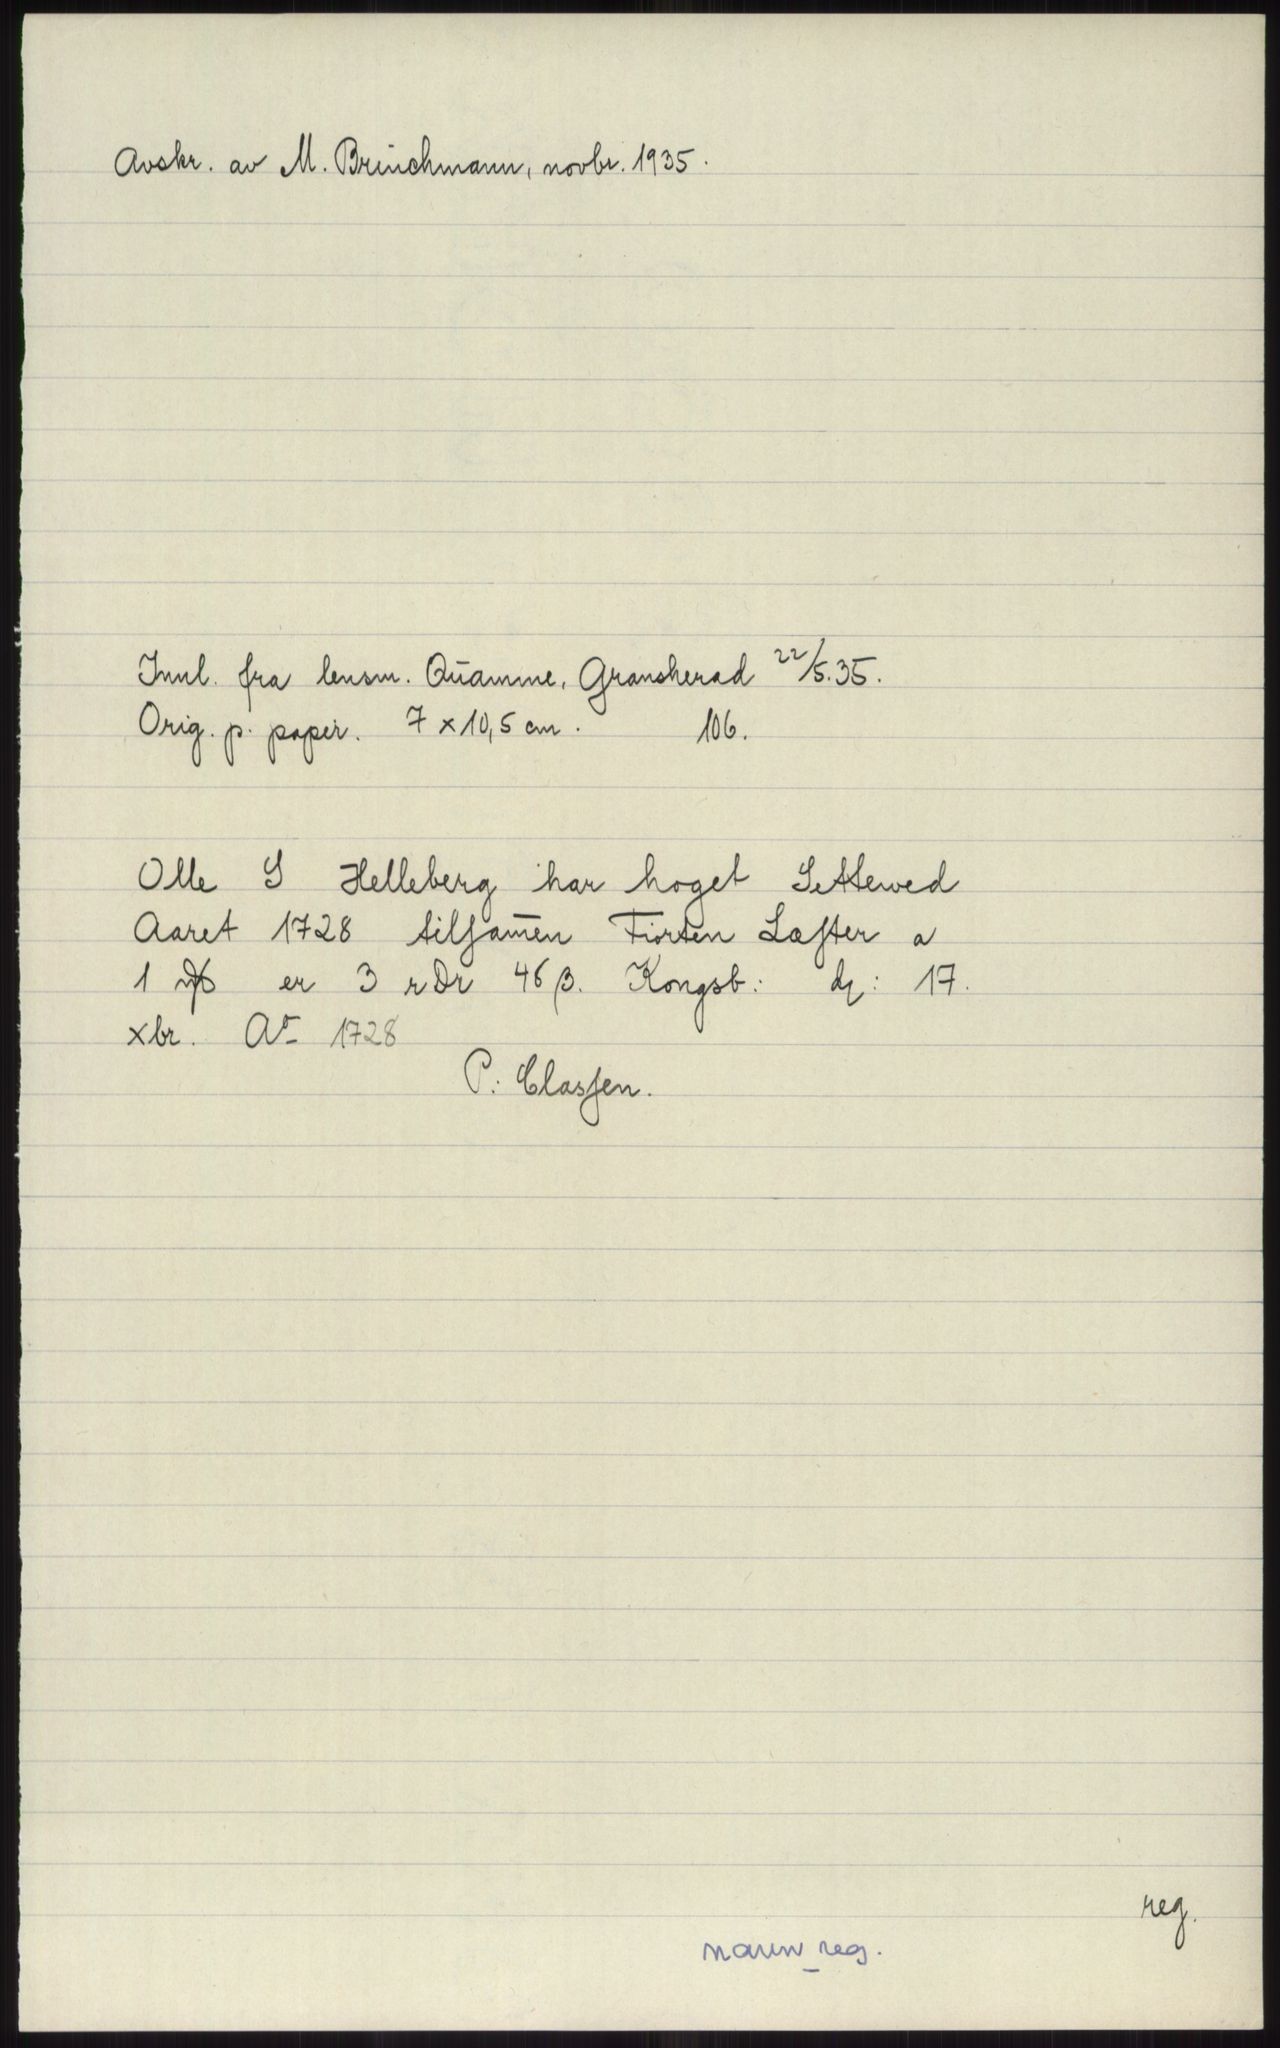 Avskr. av M. Brinchmann, novbr. 1935.
Innl. fra lensm. Quamme, Gransherad 22/5.35.
Orig. p. papir. 7 x 10,5 cm. 106.
Olle S Helleberg har hoget Settewed
Aaret 1728 tilsam̄en Fiorten Læster a
1 er 3 rDr 46 β. Kongsb: dȷ: 17.
xbr. Ao 1728
P: Classen.
reg.
navn reg.